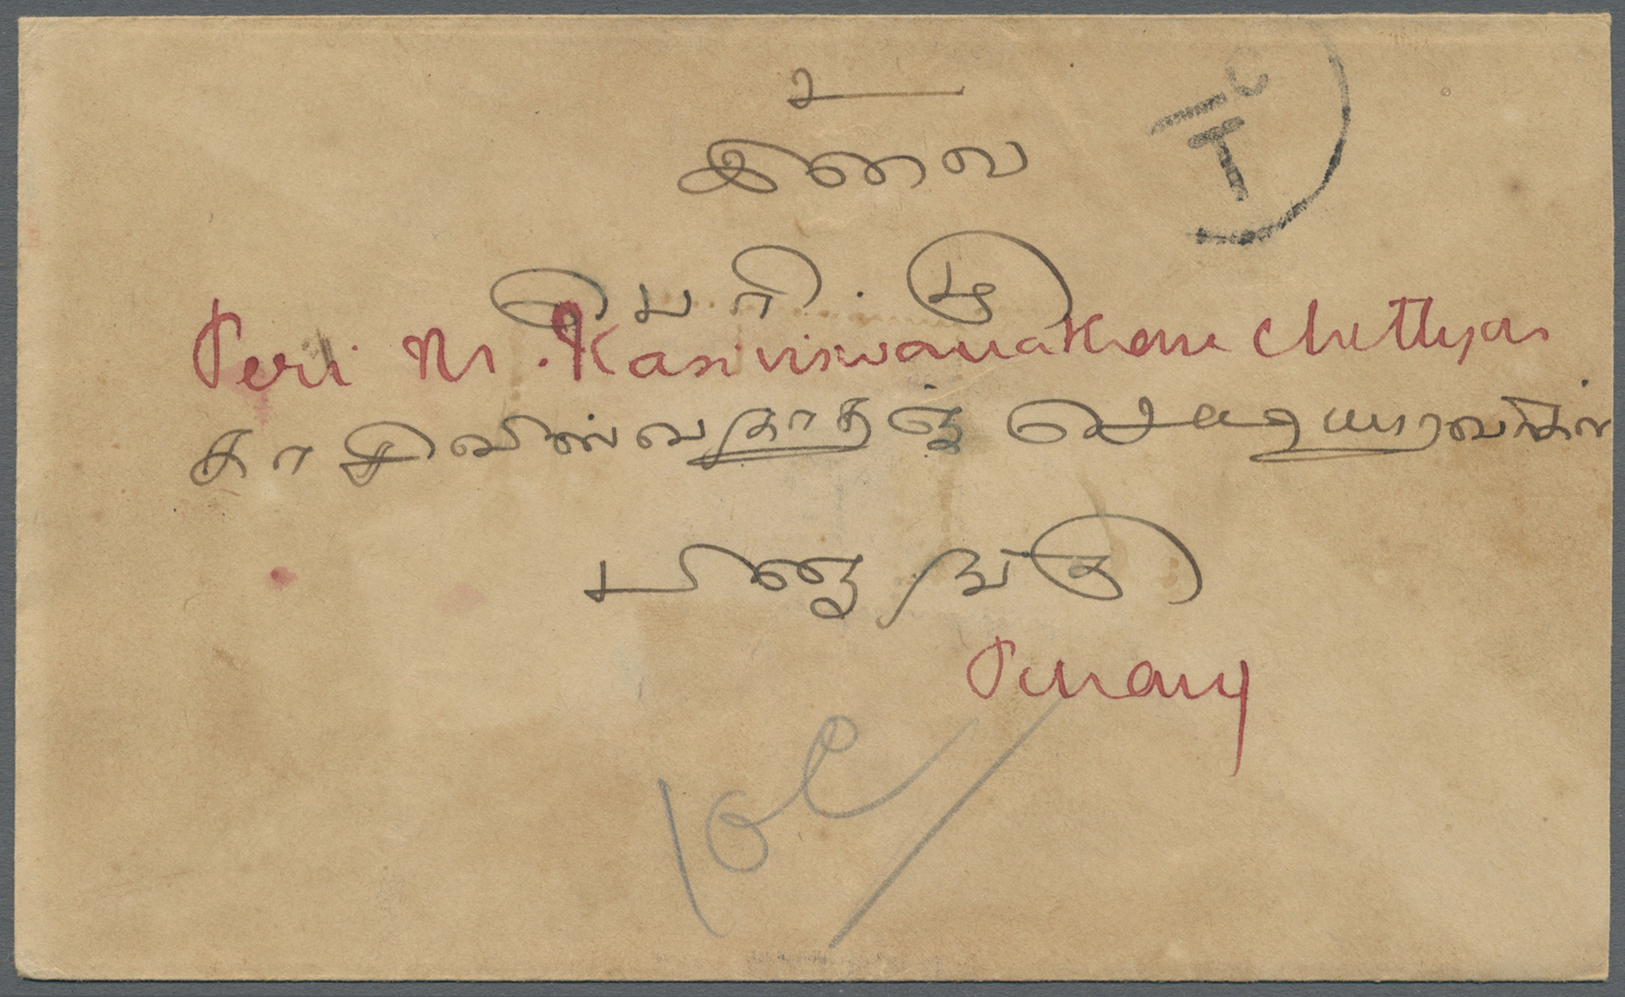 உ
T
பெரி . மு
Peri M. Kasiviswanathan Chettyar
காசிவிஸ்வநாதஞ் செட்டியாரவர்கள்
பினாங்கு
Penang
10c